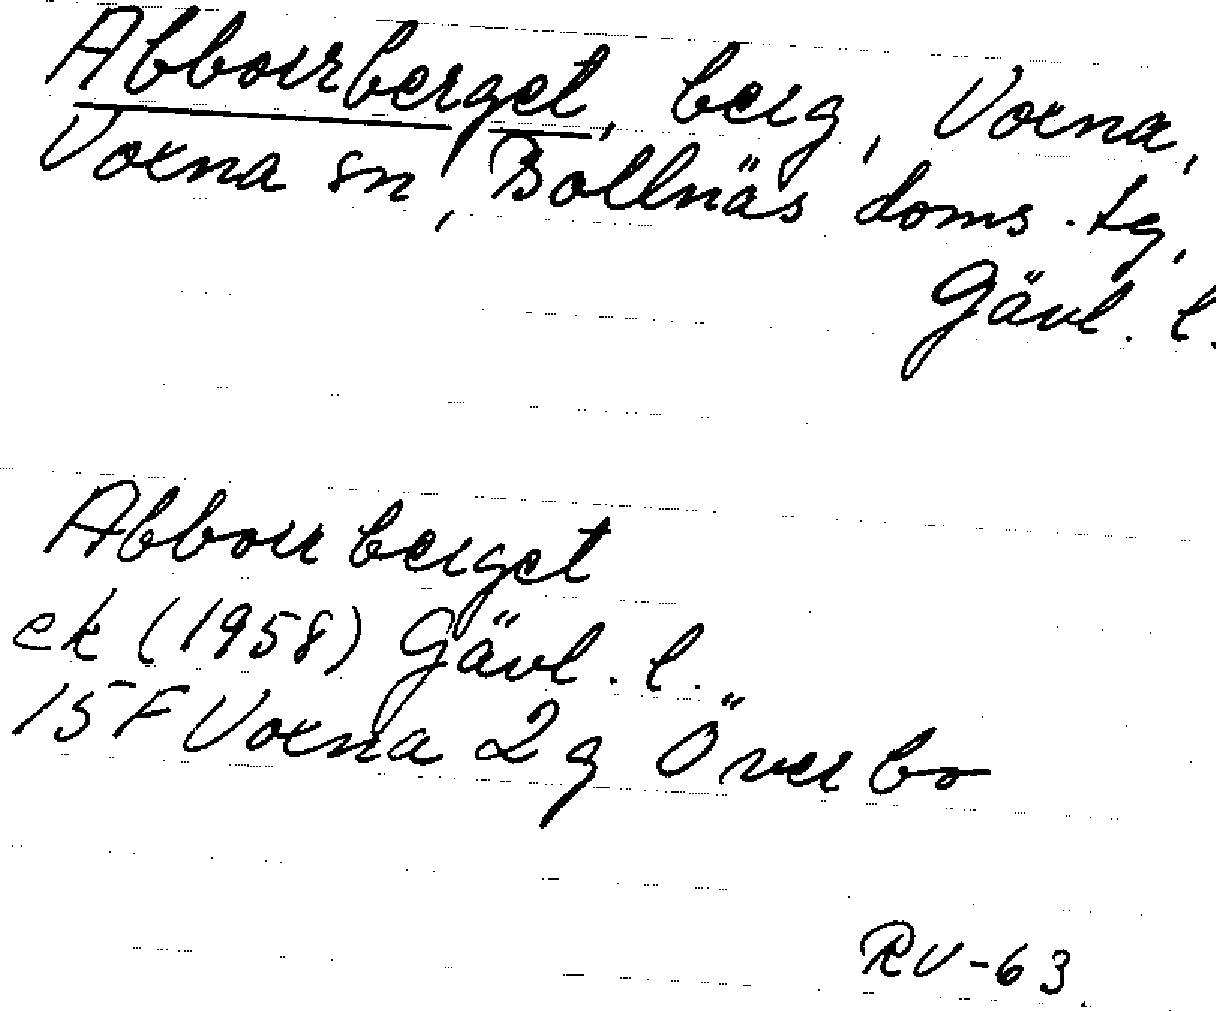 Abborrberget, berg, Voxna,
Voxna sn, Bollnäs doms.tg,
Gävl. l.
Abborrberget
ek (1958) Gävl. l.
15F Voxna 2g Överbo
RV-63.